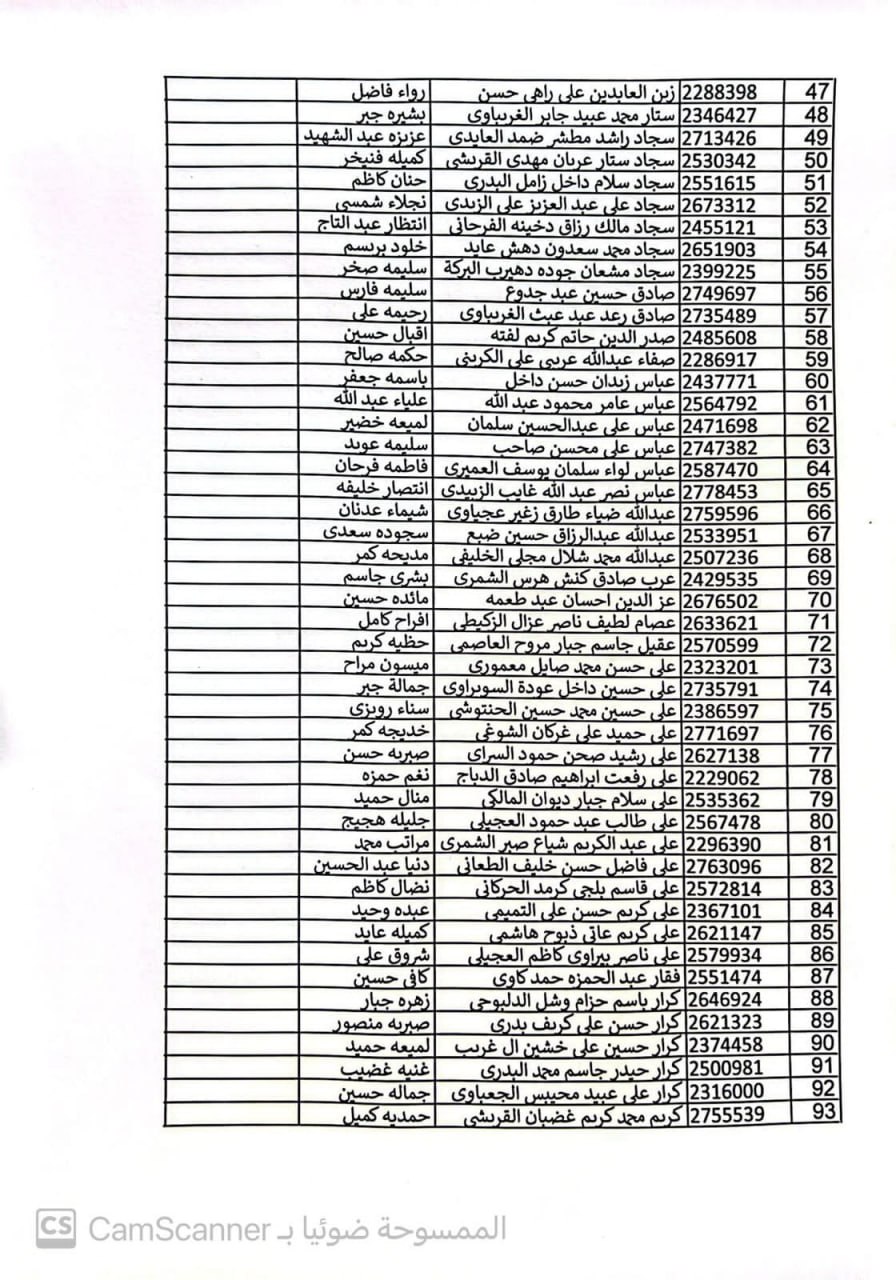 47 2288398 زين العابدين علي راهي حسن رواء فاضل
48 2346427 ستار محمد عبيد جابر الغريباوي بشيره جبر
49 2713426 سجاد راشد مطشر ضمد العايدي عزيزه عبد الشهيد
50 2530342 سجاد ستار عريان مهدي القريشي كميله فنيخر
51 2551615 سجاد سلام داخل زامل البدري حنان كاظم
52 2673312 سجاد علي عبد العزيز علي الزيدي نجلاء شمسي
53 2455121 سجاد مالك رزاق دخينه الفرحاني انتظار عبد التاج
54 2651903 سجاد محمد سعدون دهش عايد خلود بريسم
55 2399225 سجاد مشعان جوده دهيرب البركة سليمه صخر
56 2749697 صادق حسين عبد جدوع سليمه فارس
57 2735489 صادق رعد عبد عبث الغريباوي رحيمه علي
58 2485608 صدر الدين حاتم كريم لفته اقبال حسين
59 2286917 صفاء عبدالله عريبي علي الكريني حكمه صالح
60 2437771 عباس زيدان حسن داخل باسمه جعفر
61 2564792 عباس عامر محمود عبد الله علياء عبد الله
62 2471698 عباس علي عبدالحسين سلمان لميعه خضير
63 2747382 عباس علي محسن صاحب سليمه عويد
64 2587470 عباس لواء سلمان يوسف العميري فاطمه فرحان
65 2778453 عباس نصر عبد الله غايب الزبيدي انتصار خليفه
66 2759596 عبدالله ضياء طارق زغير عجياوي شيماء عدنان
67 2533951 عبدالله عبدالرزاق حسين ضبع سجوده سعدي
68 2507236 عبدالله محمد شلال مجلي الخليفي مديحه كمر
69 2429535 عرب صادق كنش هرس الشمري بشرى جاسم
70 2676502 عز الدين احسان عبد طعمه مائده حسين
71 2633621 عصام لطيف ناصر عزال الزكيطي افراح كامل
72 2570599 عقيل جاسم جبار مروح العاصمي حظيه كريم
73 2323201 علي حسن محمد صايل معموري ميسون مراح
74 2735791 علي حسين داخل عودة السويراوي جمالة جبر
75 2386597 علي حسين محمد حسين الحنتوشي سناء رويزي
76 2771697 علي حميد علي غركان الشوغي خديجه كمر
77 2627138 علي رشيد صحن حمود السراي صبريه حسن
78 2229062 علي رفعت ابراهيم صادق الدباج نغم حمزه
79 2535362 علي سلام جبار ديوان المالكي منال حميد
80 2567478 علي طالب عبد حمود العجيلي جليله هجيج
81 2296390 علي عبد الكريم شياع صبر الشمري مراتب محمد
82 2763096 علي فاضل حسن خليف الطعاني دنيا عبد الحسين
83 2572814 علي قاسم بلجي كرمد الحركاني نضال كاظم
84 2367101 علي كريم حسن علي التميمي عبده وحيد
85 2621147 علي كريم عاتي ذبوح هاشمي كميله عايد
86 2579934 علي ناصر بيراوي كاظم العجيلي شروق علي
87 2551474 فقار عبد الحمزه حمد كاوي كافي حسين
88 2646924 كرار باسم حزام وشل الدلبوحي زهره جبار
89 2621323 كرار حسن علي كريف بدري صبريه منصور
90 2374458 كرار حسين علي خشين ال غريب لميعه حميد
91 2500981 كرار حيدر جاسم محمد البدري غنيه غضيب
92 2316000 كرار علي عبيد محيبس الجعباوي جماله حسين
93 2755539 كريم محمد كريم غضبان القريشي حمديه كميل
CS الممسوحة ضوئيا بـ CamScanner